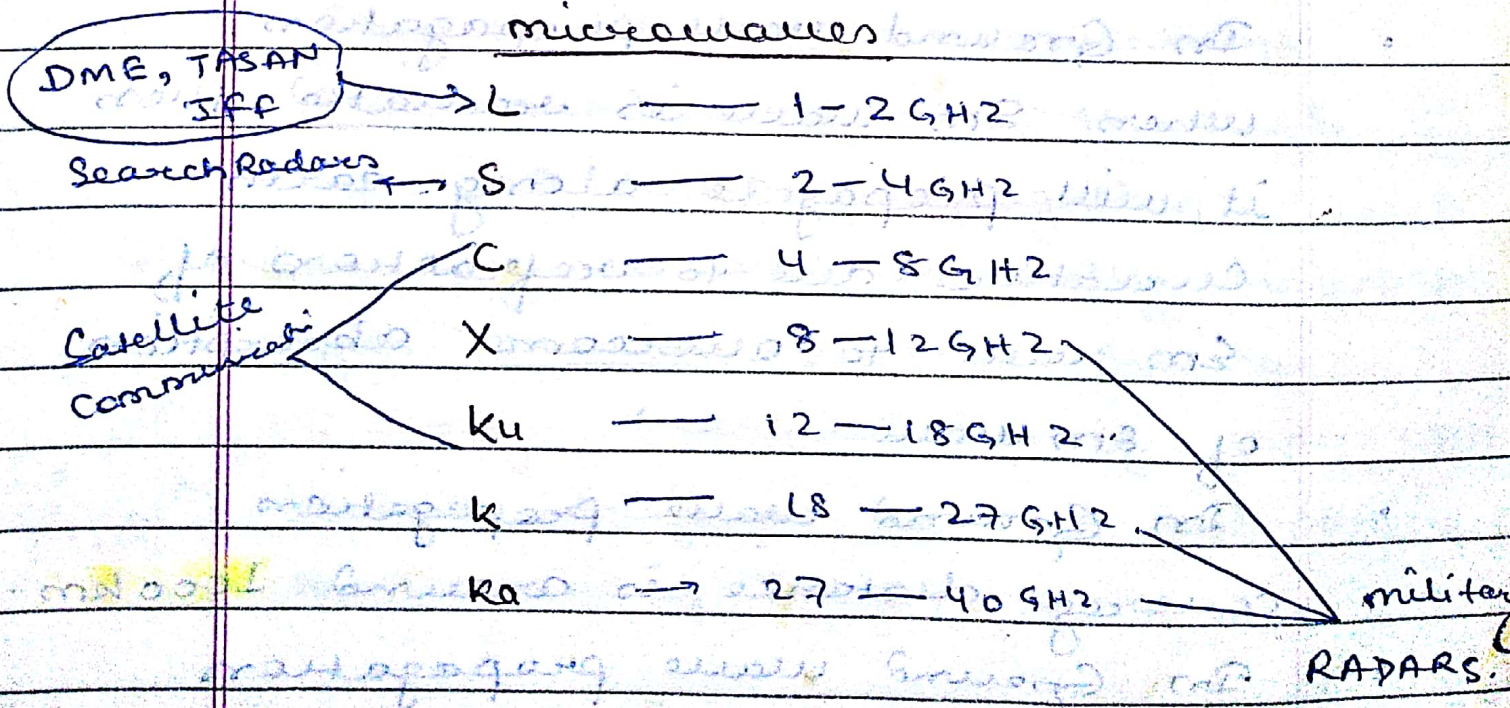 microwaves
DME, TASAN
Iff
L — 1-2 GHZ
Search Radars
S — 2-4 GHZ
C — 4-8 GHZ
Satellite
X — 8-12 GHZ
Ku — 12-18 GHZ
K — 18-27 GHZ
Ka → 27-40 GHZ
militar
RADARS.